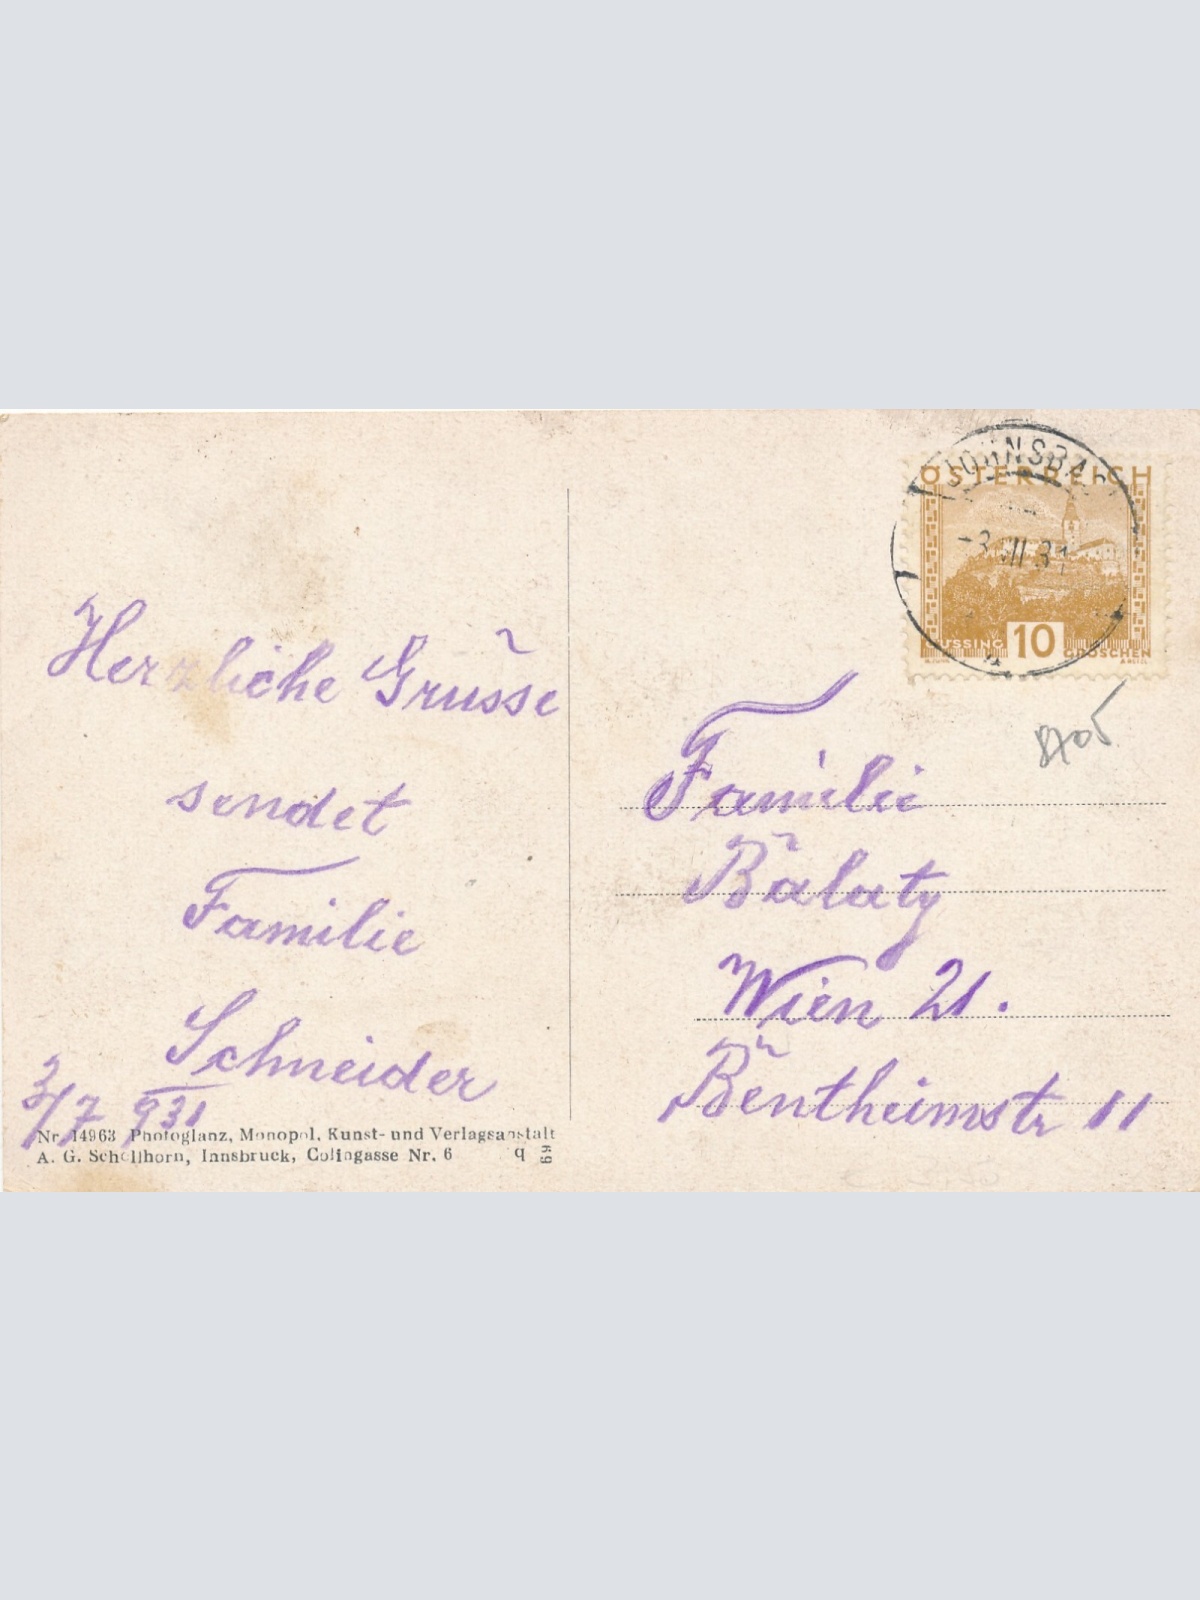 Herzliche Grüsse
sendet
Familie
Schneider
3/7 931
Nr. 14963 Photoglanz, Monopol, Kunst- und Verlagsanstalt
A. G. Schellhorn, Innsbruck, Colingasse Nr. 6 q 69
JOHNSBA
ÖSTERREICH
-3. VII 31
SSING 10 GROSCHEN
8705
Familie
Balaty
Wien 21.
Bentheimstr 11